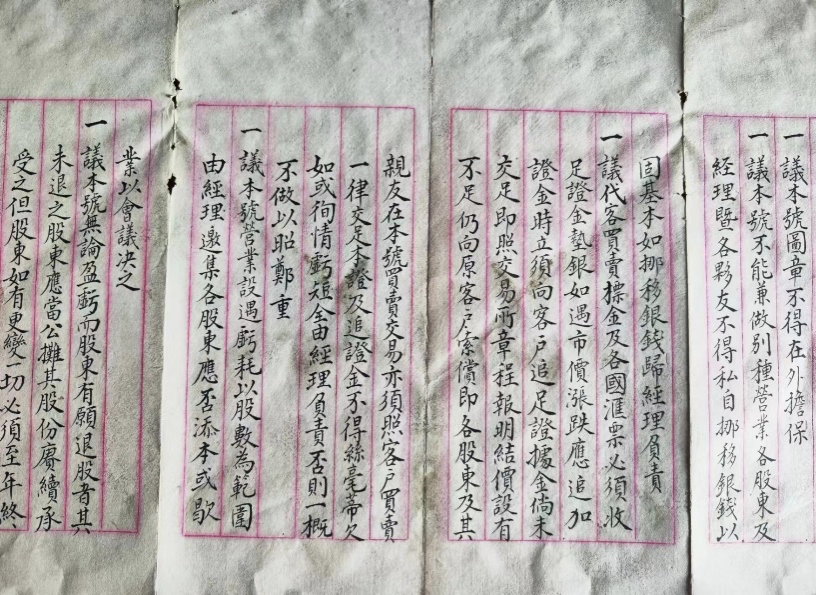 一議本號圖章不得在外擔保
一議本號不能兼做別種營業各股東及
經理暨各夥友不得私自挪移銀錢以
固基本如挪移銀錢歸經理負責
一議代客買賣標金及各國滙票必須收
足證金墊銀如遇市價漲跌應追加
證金時立須向客戶追足證據金倘未
交足即照交易所章程報明結價設有
不足仍向原客戶索償即各股東及其
親友在本號買賣交易亦須照客戶買賣
一律交足本證及追證金不得絲毫蒂欠
如或徇情虧短全由經理負責否則一概
不做以昭鄭重
一議本號營業設遇虧耗以股數為範圍
由經理邀集各股東應否添本或歇
業以會議决之
一議本號無論盈虧而股東有願退股者其
未退之股東應當公攤其股份賡續承
受之但股東如有更變一切必須至年終